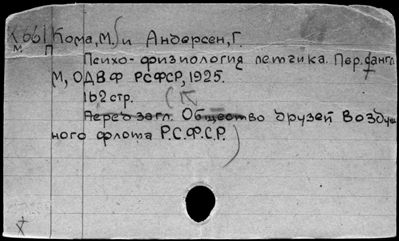 Кома, М. и Андерсен, Г.
Психо-физиология летчика. Пер. с англ.
М, ОДВФ РСФСР, 1925.
162 стр.
Перед загл. Общество друзей Воздуш
ного флота Р.С.Ф.С.Р.